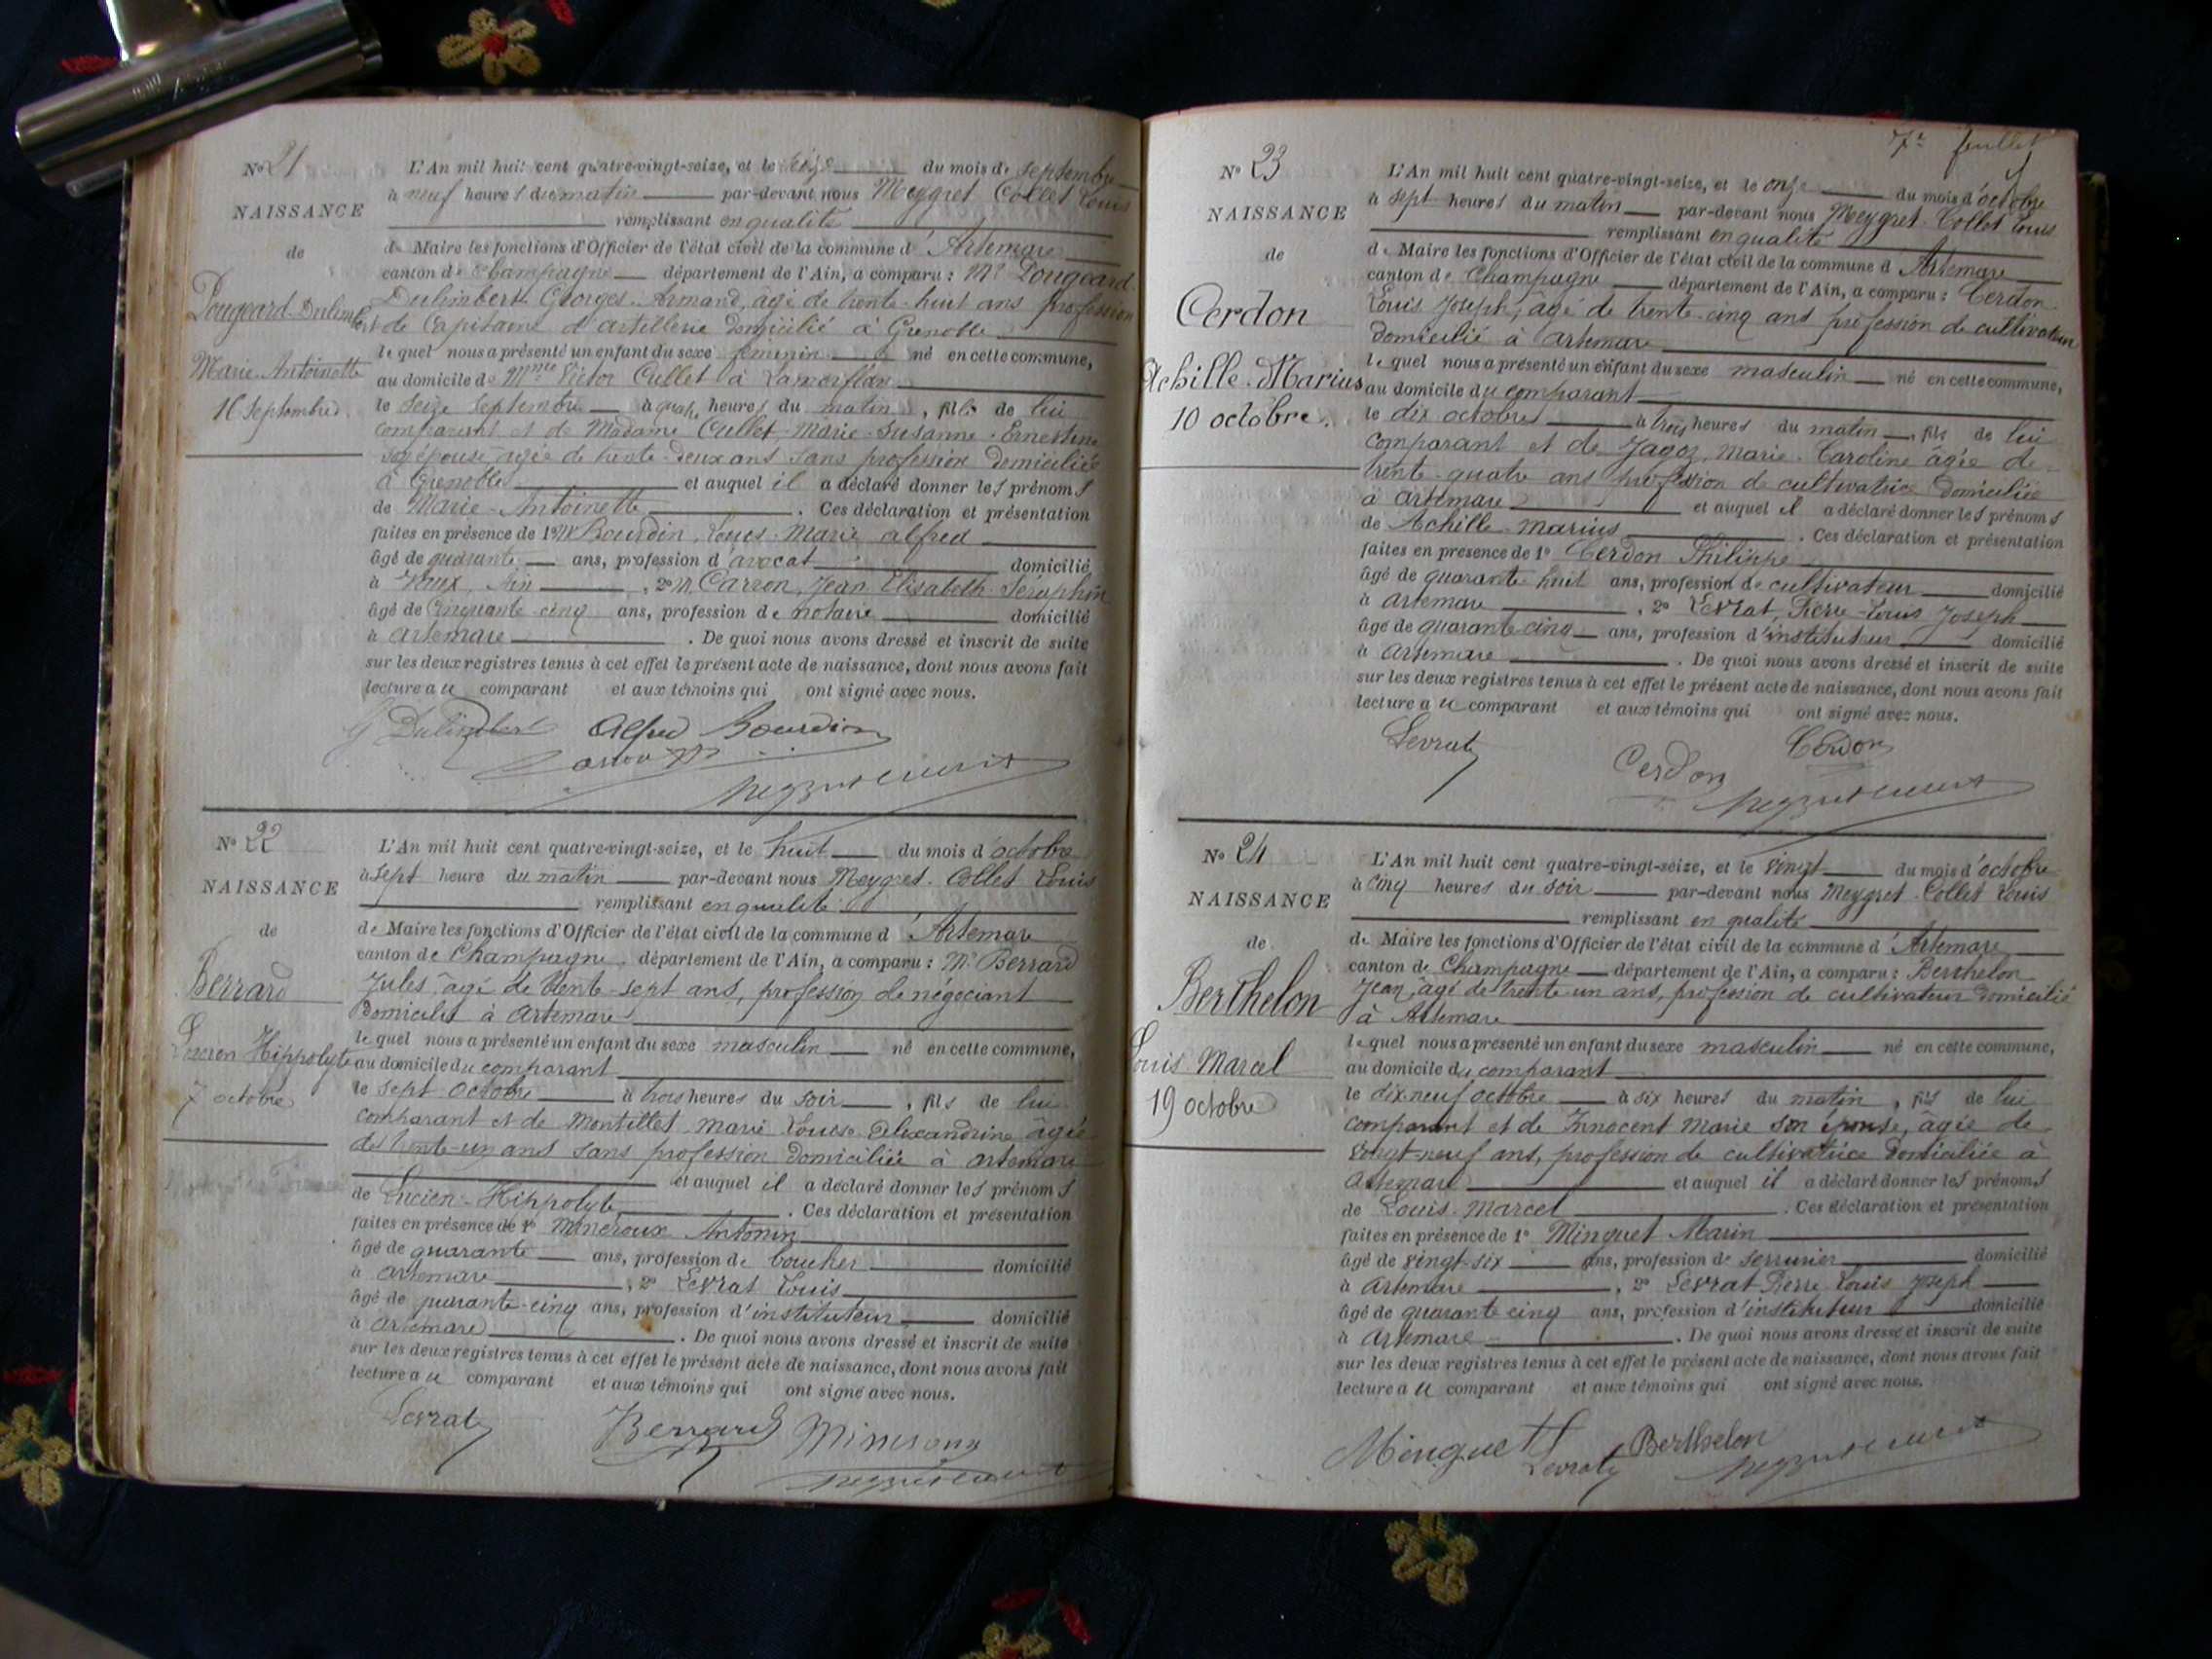 No 21
NAISSANCE
de
Pougeard-Dulimbert
Marie-Antoinette
16 Septembre
L'An mil huit cent quatre-vingt-seize, et le seize du mois de septembre
à neuf heures du matin par-devant nous Meygret Collet Louis
remplissant en qualité
de Maire les fonctions d'Officier de l'état civil de la commune d'Artemare
canton de Champagne département de l'Ain, a comparu : Mr Pougeard
Dulimbert Georges-Armand, âgé de trente-huit ans profession
de Capitaine d'artillerie domicilié à Grenoble
lequel nous a présenté un enfant du sexe féminin né en cette commune,
au domicile de Mme Victor Cullet à
le seize septembre à quatre heures du matin, fille de lui
comparant et de Madame Cullet Marie-Susanne-Ernestine
son épouse agée de trente-deux ans sans profession domiciliée
à Grenoble et auquel il a déclaré donner les prénoms
de Marie-Antoinette. Ces déclaration et présentation
faites en présence de 1o Mr Bourdin, Louis Marie alfred
âgé de quarante ans, profession d'avocat domicilié
à , Ain, 2o Mr Carron, Jean Elisabeth Séraphin
âgé de Cinquante-cinq ans, profession de notaire domicilié
à artemare. De quoi nous avons dressé et inscrit de suite
sur les deux registres tenus à cet effet le présent acte de naissance, dont nous avons fait
lecture au comparant et aux témoins qui ont signé avec nous.
Dulimbert Alfred Bourdin
No 22
NAISSANCE
de
Berrard
Lucien Hippolyte
7 octobre
L'An mil huit cent quatre-vingt-seize, et le huit du mois d'octobre
à sept heure du matin par-devant nous Meygret-Collet Louis
remplissant en qualité
de Maire les fonctions d'Officier de l'état civil de la commune d'Artemare
canton de Champagne, département de l'Ain, a comparu : Mr Berrard
Jules, âgé de trente-sept ans, profession de négociant
domicilié à artemare
lequel nous a présenté un enfant du sexe masculin né en cette commune,
au domicile du comparant
le sept octobre à trois heures du soir, fils de lui
comparant et de Montillet Marie Louise Alexandrine âgée
de trente-un ans sans profession domiciliée à artemare
et auquel il a déclaré donner les prénoms
de Lucien-Hippolyte. Ces déclaration et présentation
faites en présence de 1o Antonin
âgé de quarante ans, profession de boucher domicilié
à artemare, 2o Levrat Louis
âgé de quarante-cinq ans, profession d'instituteur domicilié
à artemare. De quoi nous avons dressé et inscrit de suite
sur les deux registres tenus à cet effet le présent acte de naissance, dont nous avons fait
lecture au comparant et aux témoins qui ont signé avec nous.
Levrat Berrard
7e feuillet
No 23
NAISSANCE
de
Cerdon
Achille-Marius
10 octobre.
L'An mil huit cent quatre-vingt-seize, et le onze du mois d'octobre
à sept heures du matin par-devant nous Meygret-Collet Louis
remplissant en qualité
de Maire les fonctions d'Officier de l'état civil de la commune d Artemare
canton de Champagne département de l'Ain, a comparu : Cerdon
Louis Joseph, âgé de trente-cinq ans profession de cultivateur
domicilié à artemare
lequel nous a présenté un enfant du sexe masculin né en cette commune,
au domicile du comparant
le dix octobre à trois heures du matin, fils de lui
comparant et de Jagoz, Marie-Caroline âgée de
trente-quatre ans profession de cultivatrice domiciliée
à artemare et auquel il a déclaré donner les prénoms
de Achille-Marius. Ces déclaration et présentation
faites en présence de 1o Cerdon Philippe
âgé de quarante-huit ans, profession de cultivateur domicilié
à artemare, 2o Levrat, Pierre-Louis Joseph
âgé de quarante-cinq ans, profession d'instituteur domicilié
à artemare. De quoi nous avons dressé et inscrit de suite
sur les deux registres tenus à cet effet le présent acte de naissance, dont nous avons fait
lecture au comparant et aux témoins qui ont signé avec nous.
Levrat Cerdon Cerdon
No 24
NAISSANCE
de
Berthelon
Louis-Marcel
19 octobre
L'An mil huit cent quatre-vingt-seize, et le vingt du mois d'octobre
à cinq heures du soir par-devant nous Meygret-Collet Louis
remplissant en qualité
de Maire les fonctions d'Officier de l'état civil de la commune d'Artemare
canton de Champagne département de l'Ain, a comparu : Berthelon
Jean, âgé de trente un ans, profession de cultivateur domicilié
à Artemare
lequel nous a présenté un enfant du sexe masculin né en cette commune,
au domicile du comparant
le dix-neuf octobre à six heures du matin, fils de lui
comparant et de Innocent Marie son épouse, âgée de
vingt-neuf ans, profession de cultivatrice domiciliée à
artemare et auquel il a déclaré donner les prénoms
de Louis-Marcel. Ces déclaration et présentation
faites en présence de 1o Minguet Marin
âgé de vingt-six ans, profession de serrurier domicilié
à artemare, 2o Levrat Pierre Louis Joseph
âgé de quarante cinq ans, profession d'instituteur domicilié
à artemare. De quoi nous avons dressé et inscrit de suite
sur les deux registres tenus à cet effet le présent acte de naissance, dont nous avons fait
lecture au comparant et aux témoins qui ont signé avec nous.
Minguet Levrat Berthelon